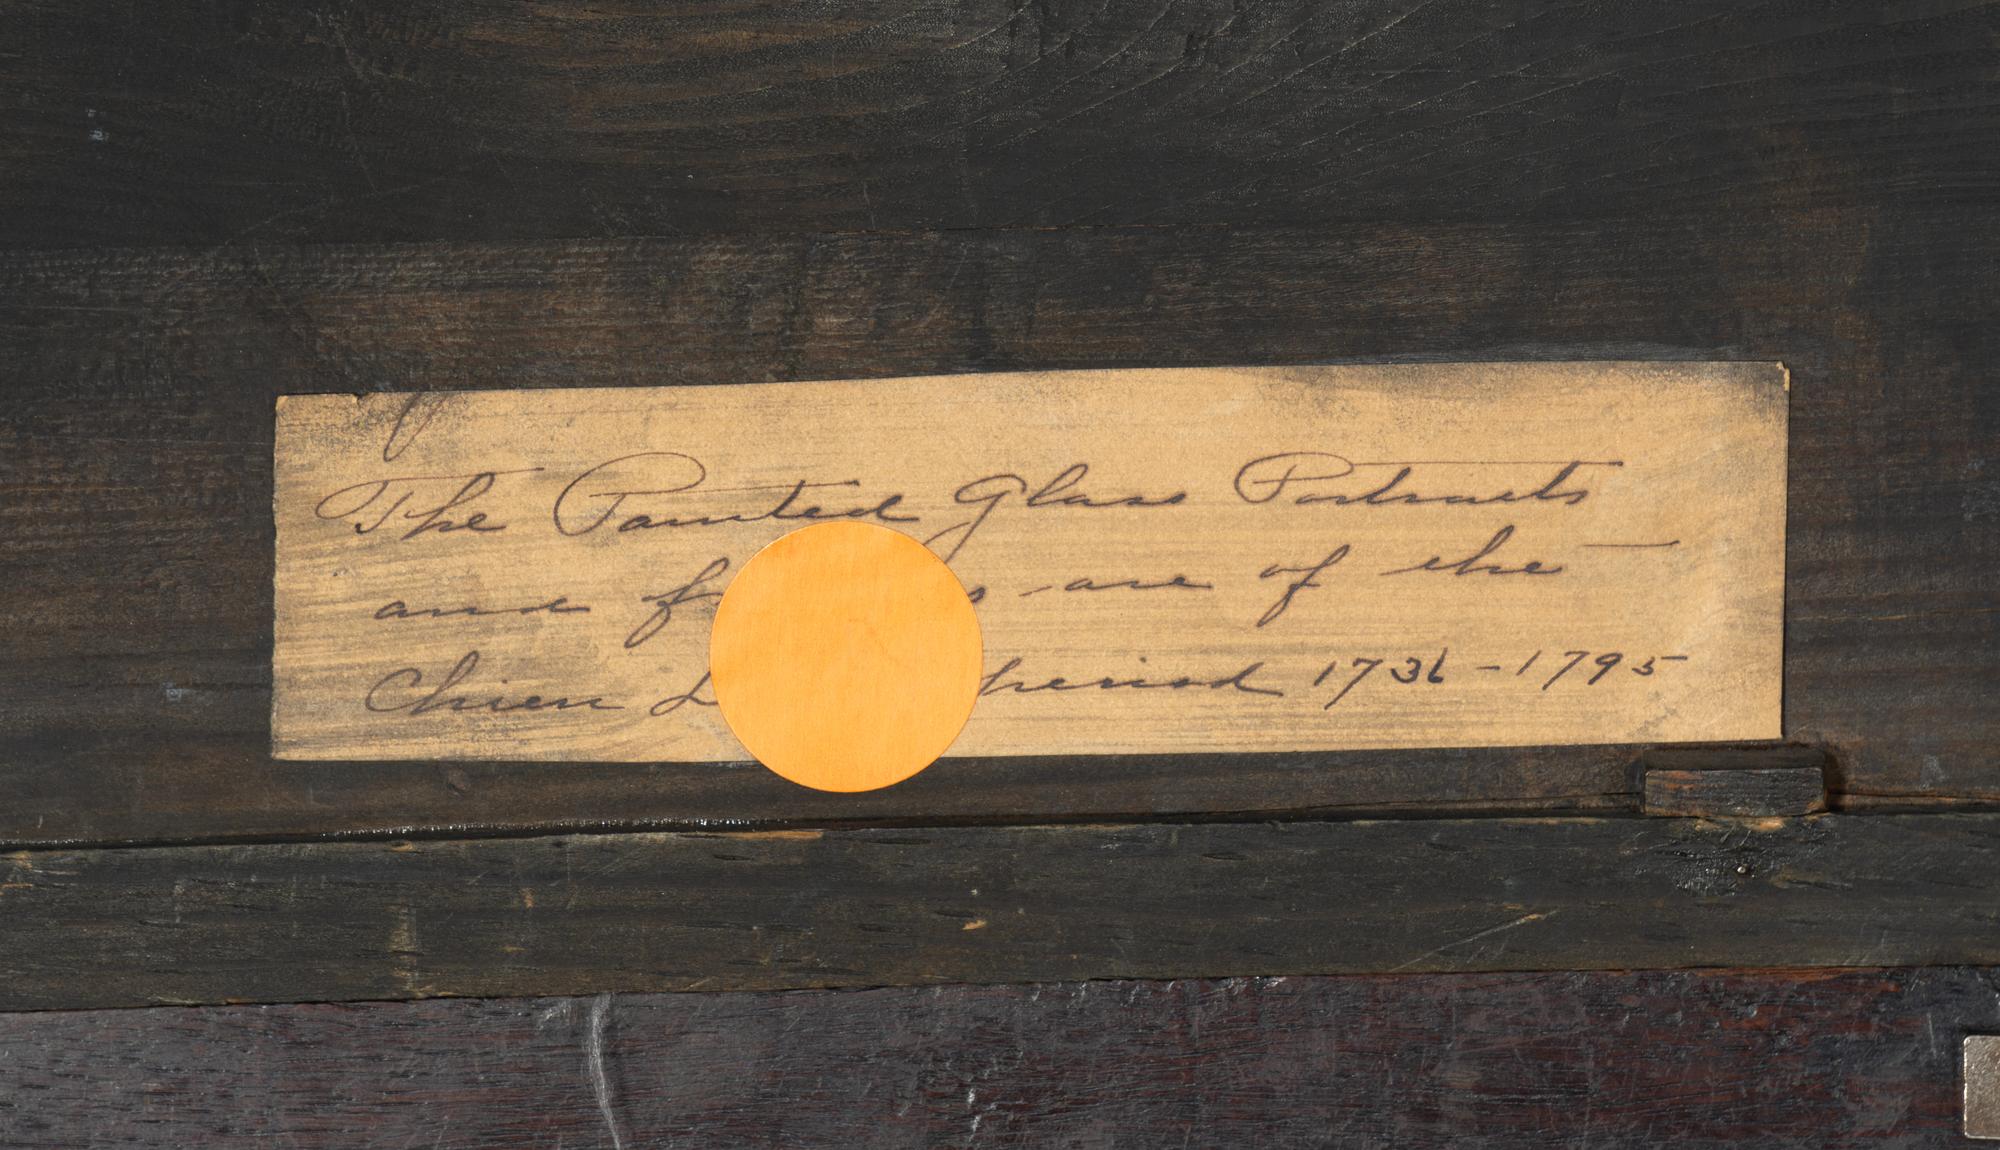 The Painted Glass Portraits
and are of the —
Chien period 1736 - 1795